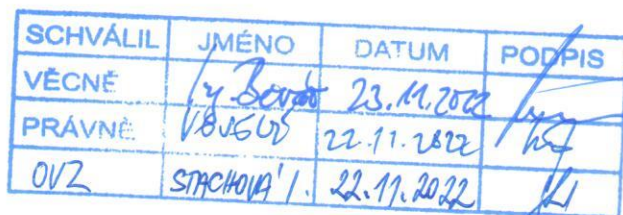 SCHVÁLIL JMÉNO DATUM PODPIS
VĚCNĚ 23.11.2022
PRÁVNĚ 22.11.2022
OVZ STACHOVÁ 22.11.2022